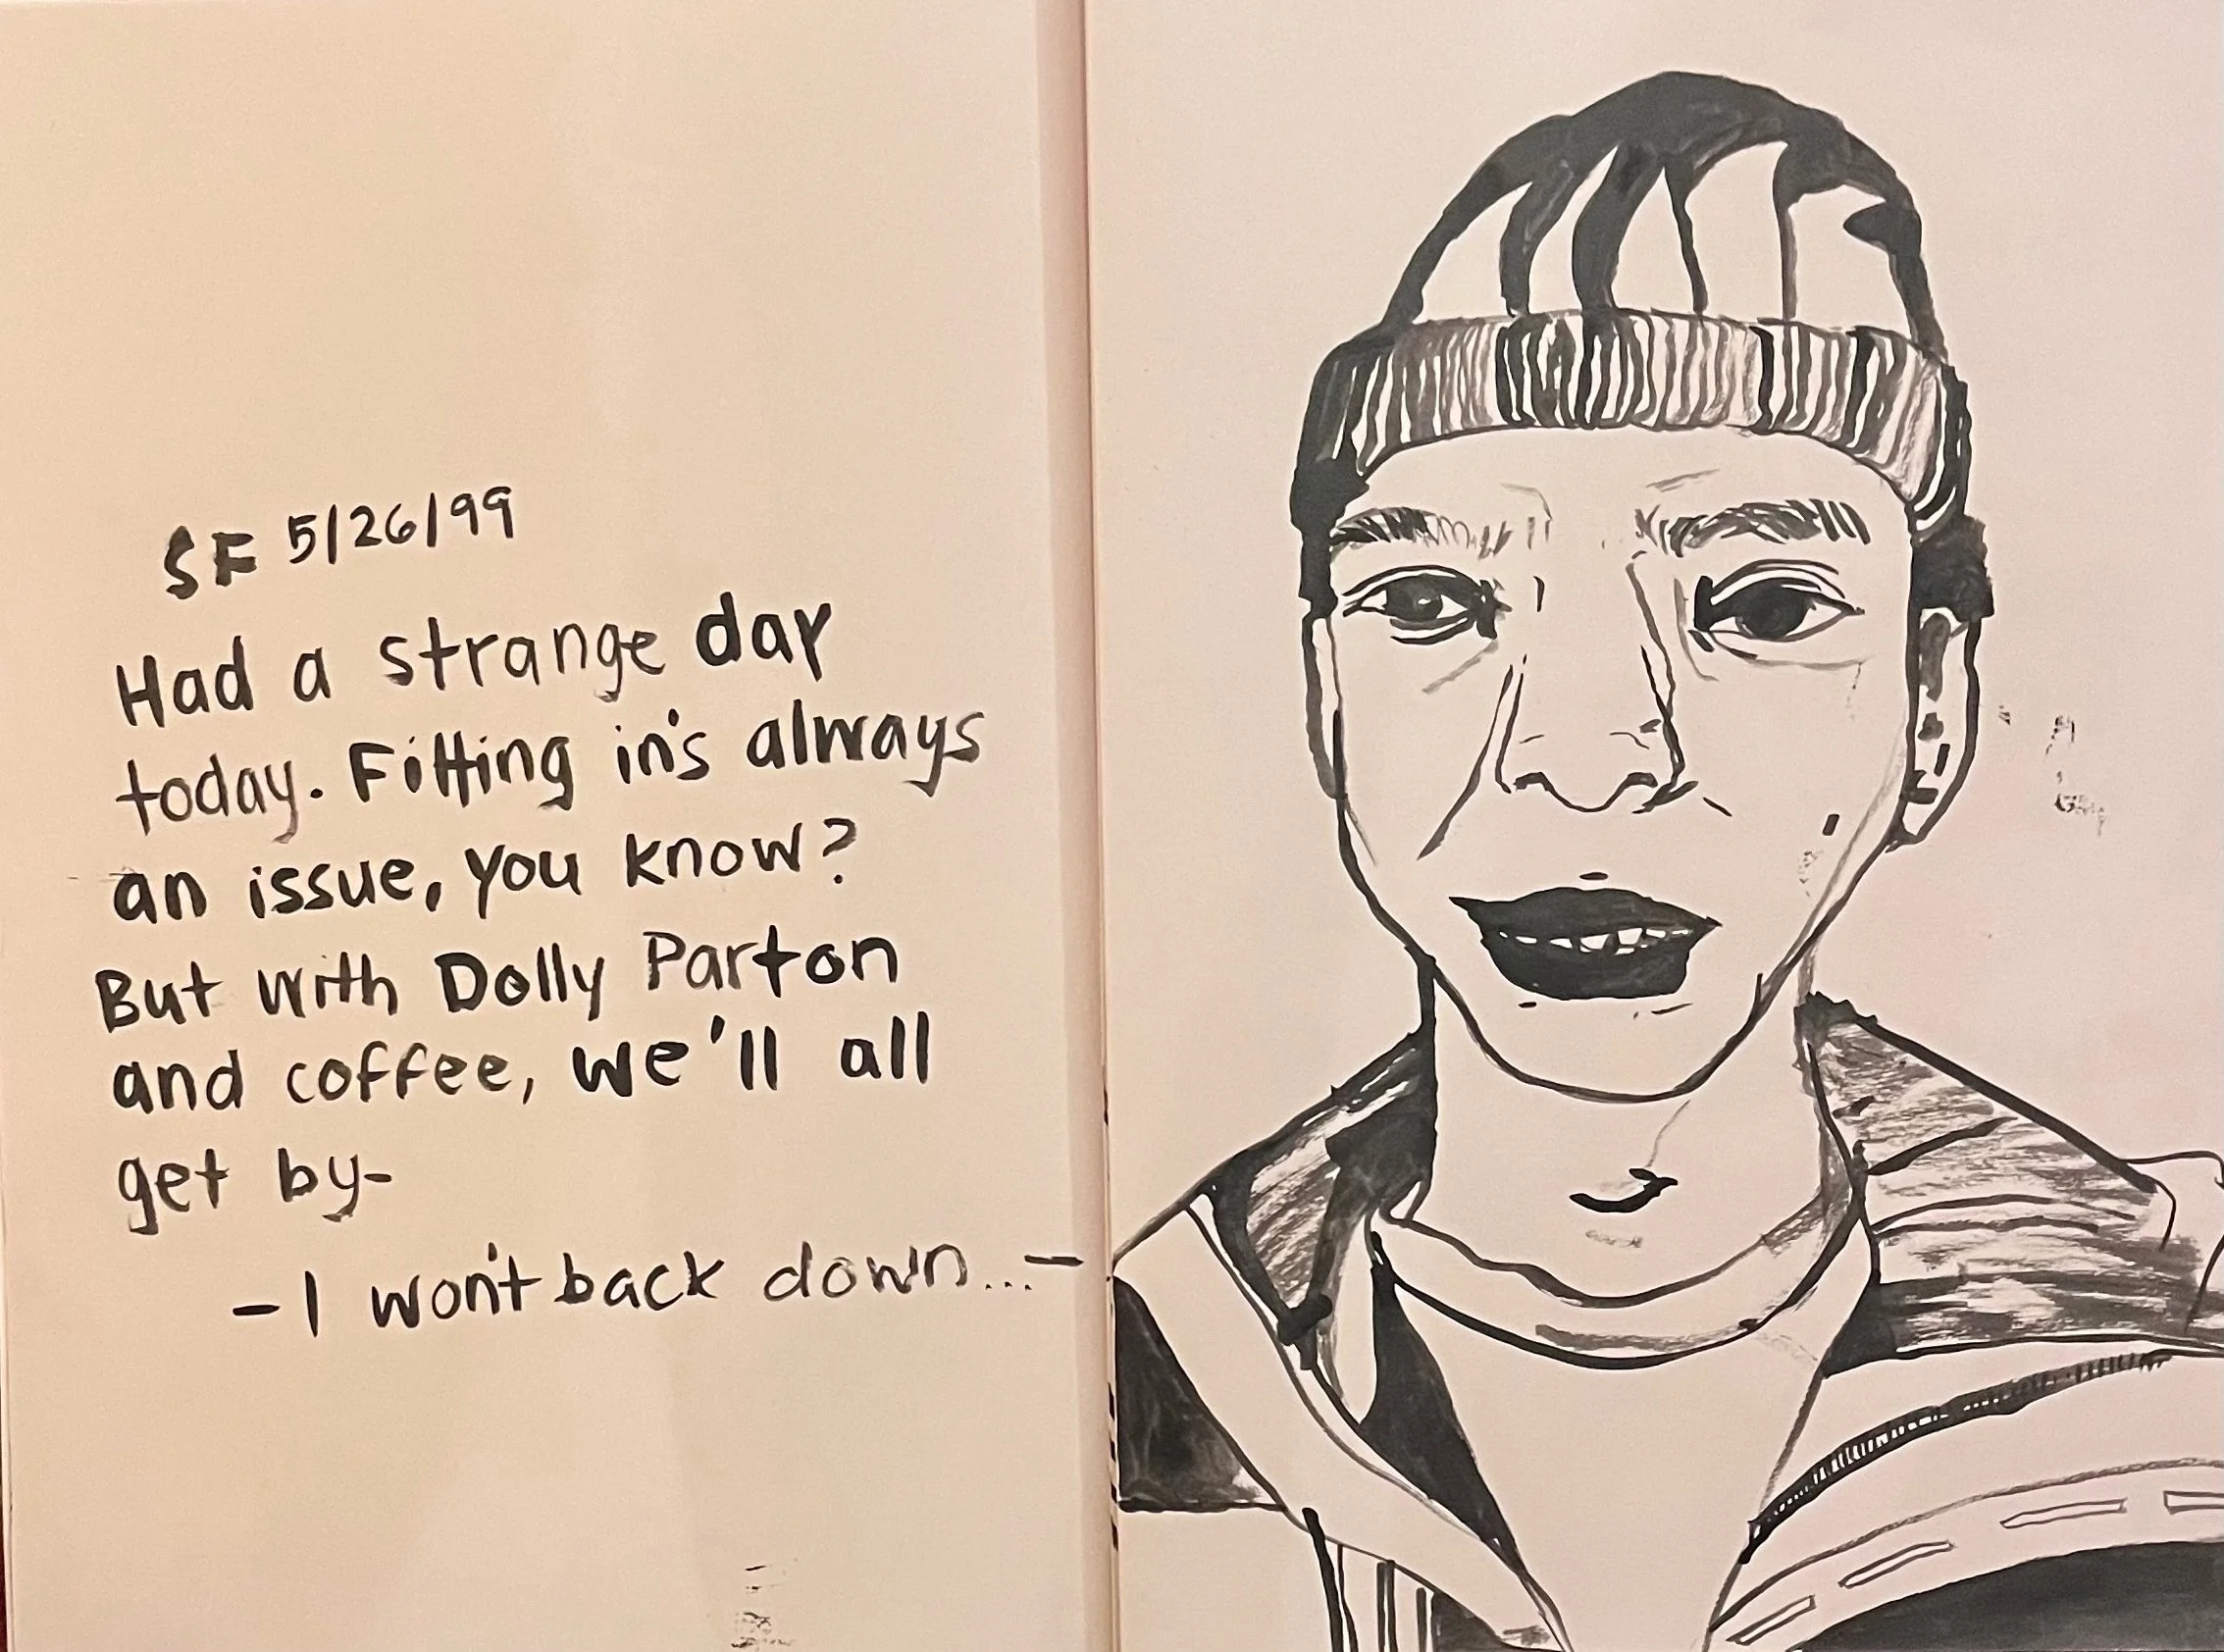 SF 5/26/99
Had a strange day
today. Fitting in's always
an issue, you know?
But with Dolly Parton
and coffee, we'll all
get by-
- I won't back down...-